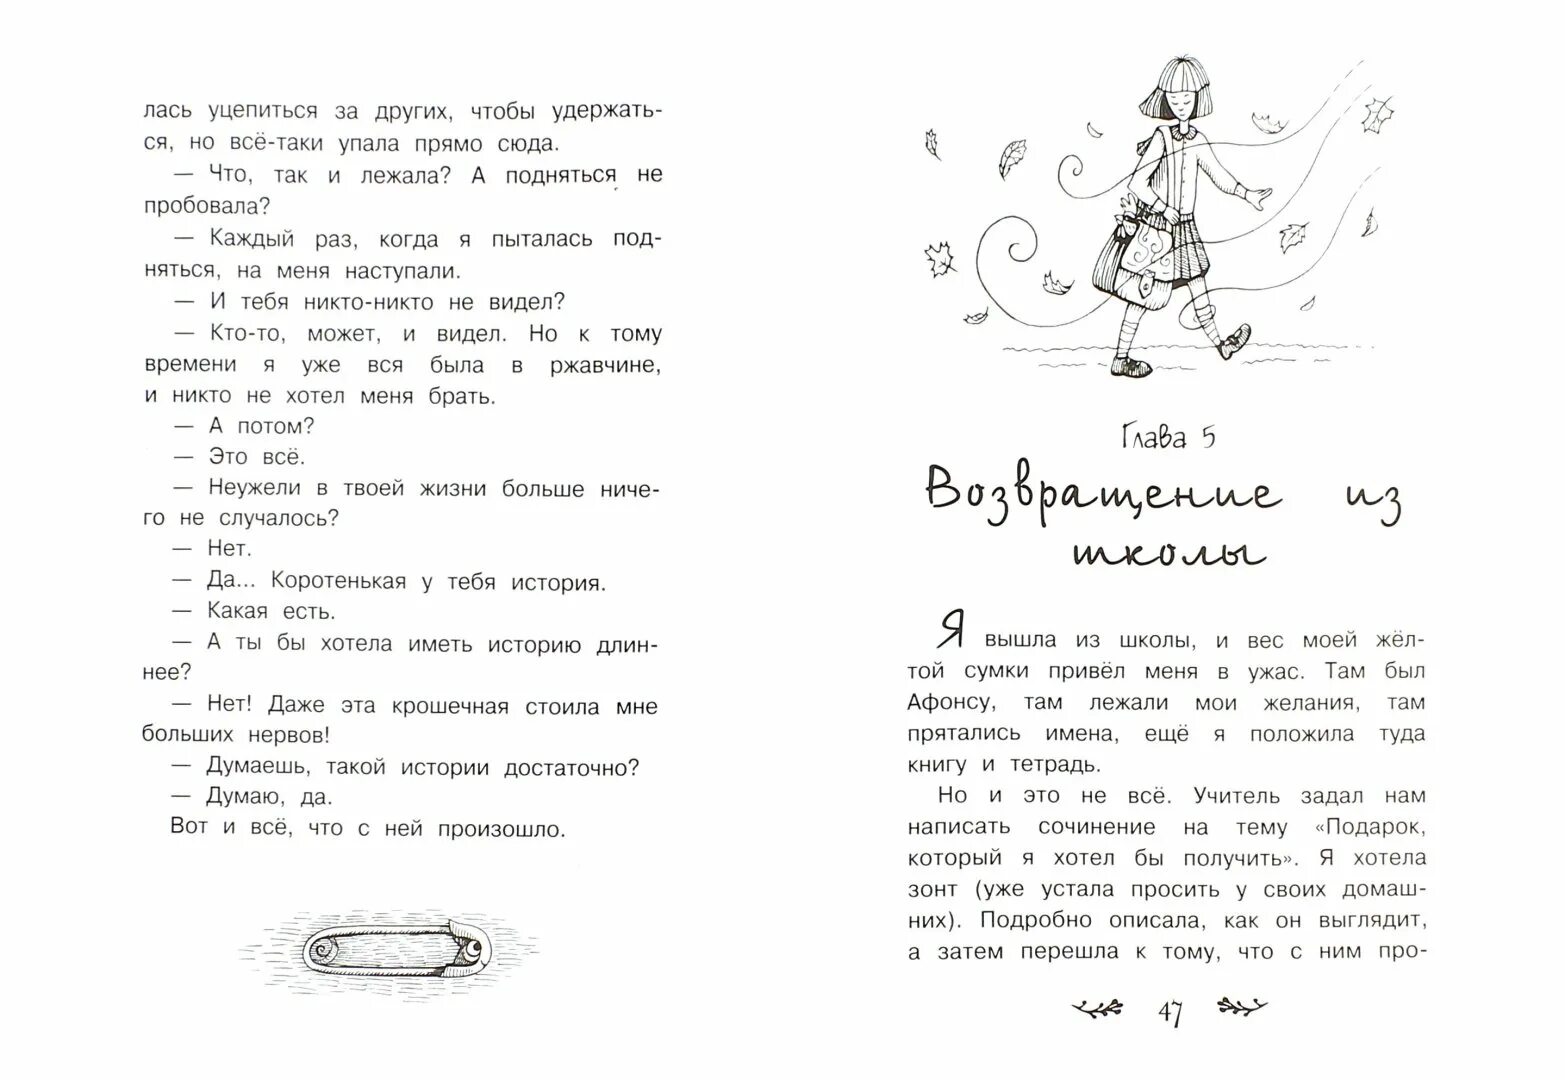 лась уцепиться за других, чтобы удержать-
ся, но всё-таки упала прямо сюда.
— Что, так и лежала? А подняться не
пробовала?
— Каждый раз, когда я пыталась под-
няться, на меня наступали.
— И тебя никто-никто не видел?
— Кто-то, может, и видел. Но к тому
времени я уже вся была в ржавчине,
и никто не хотел меня брать.
— А потом?
— Это всё.
— Неужели в твоей жизни больше ниче-
го не случалось?
— Нет.
— Да... Коротенькая у тебя история.
— Какая есть.
— А ты бы хотела иметь историю длин-
нее?
— Нет! Даже эта крошечная стоила мне
больших нервов!
— Думаешь, такой истории достаточно?
— Думаю, да.
Вот и всё, что с ней произошло.
Глава 5
Возвращение из
школы
Я вышла из школы, и вес моей жёл-
той сумки привёл меня в ужас. Там был
Афонсу, там лежали мои желания, там
прятались имена, ещё я положила туда
книгу и тетрадь.
Но и это не всё. Учитель задал нам
написать сочинение на тему «Подарок,
который я хотел бы получить». Я хотела
зонт (уже устала просить у своих домаш-
них). Подробно описала, как он выглядит,
а затем перешла к тому, что с ним про-
47